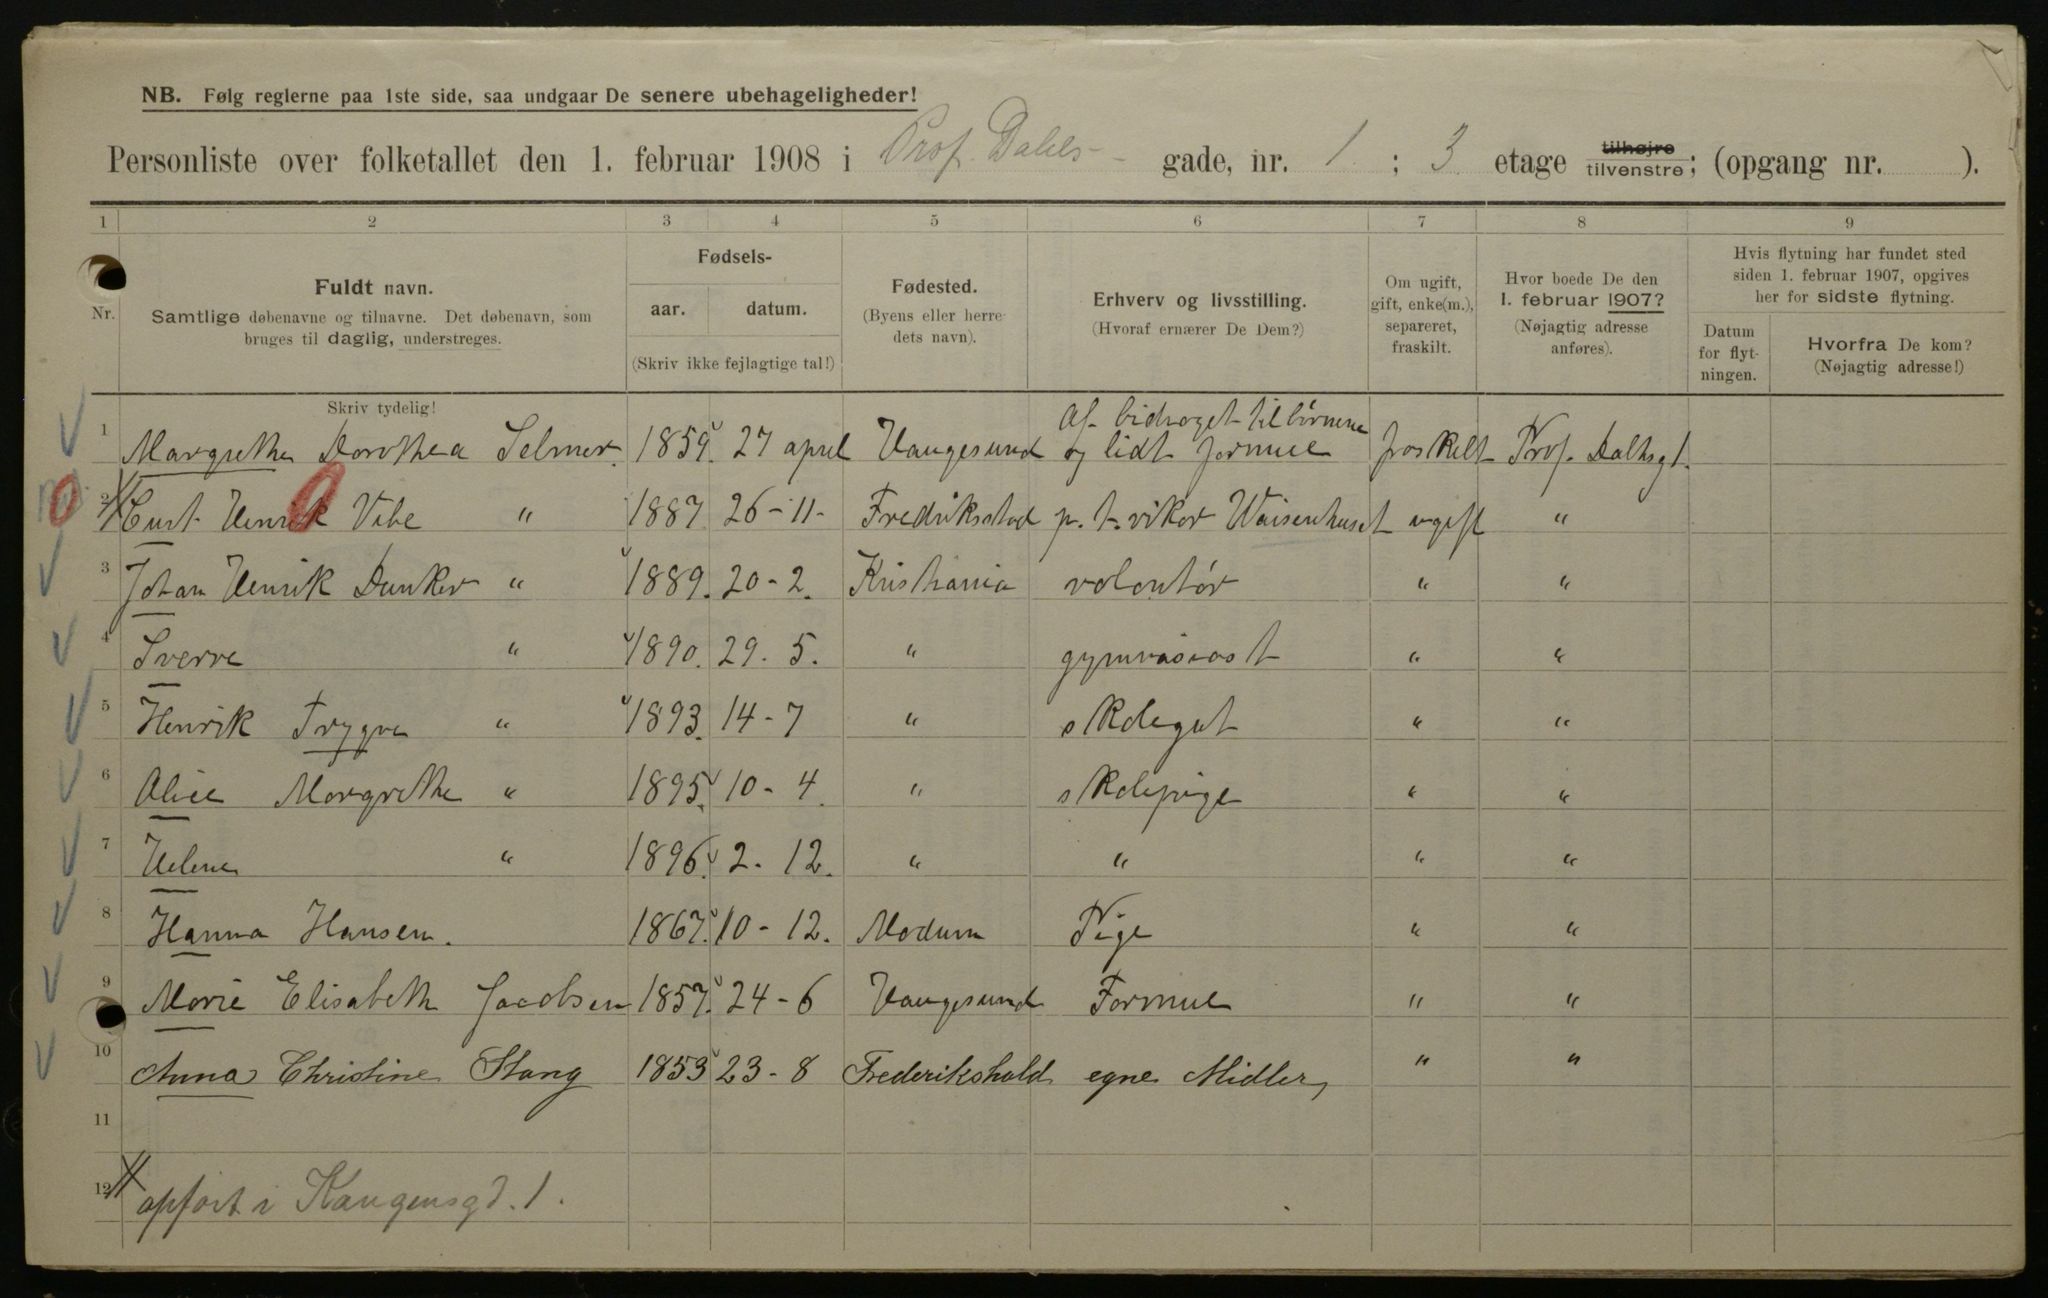 NB. Følg reglerne paa 1ste side, saa undgaar De senere ubehageligheder!
Personliste over folketallet den 1. februar 1908 i Prof. Dahls - gade, nr. 1 ; 3 etage tilhøjre tilvenstre; (opgang nr. ).
1 2 3 4 5 6 7 8 9
Nr.
Fuldt navn.
Samtlige døbenavne og tilnavne. Det døbenavn, som
bruges til daglig, understreges.
Skriv tydelig!
Fødsels-
aar. datum.
(Skriv ikke fejlagtige tal!)
Fødested.
(Byens eller herre-
dets navn).
Erhverv og livsstilling.
(Hvoraf ernærer De Dem?)
Om ugift,
gift, enke(m.),
separeret,
fraskilt.
Hvor boede De den
1. februar 1907?
(Nøjagtig adresse
anføres).
Hvis flytning har fundet sted
siden 1. februar 1907, opgives
her for sidste flytning.
Datum
for flyt-
ningen.
Hvorfra De kom?
(Nøjagtig adresse!)
Af bidraget til børnene
1 Margrethe Dorothea Selmer. 1859. 27 april Haugesund og lidt formue fraskilt Prof. Dahlsgt.
2 Curt Henrik Vibe " 1887 26-11- Fredriksstad p. t. vikar Waisenhuset ugift "
3 Johan Henrik Dunker " 1889. 20-2. Kristiania volontør " "
4 Sverre " 1890. 29. 5. " gymnasiast " "
5 Henrik Trygve " 1893. 14-7 " skolegut " "
6 Alice Margrethe " 1895. 10-4. " skolepige " "
7 Helene " 1896. 2. 12. " " " "
8 Hanna Hansen. 1867. 10-12. Modum Pige " "
9 Marie Elisabeth Jacobsen 1857. 24-6 Haugesund Formue " "
10 Anna Christine Stang 1853 23-8 Frederikshald egne Midler, " "
11
12 opført i Kaugensgd. 1.